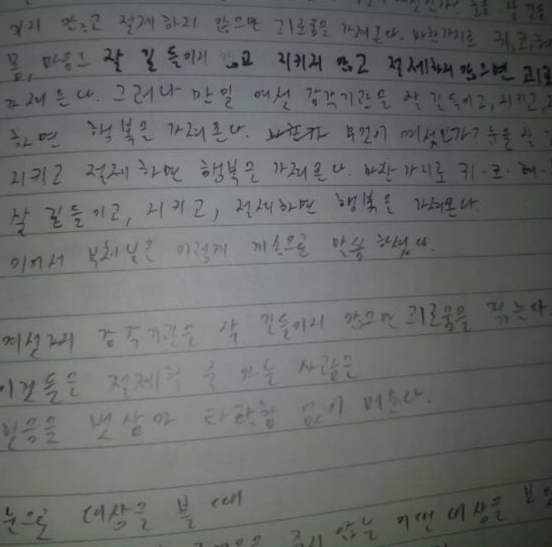 지키지 않고 절제하지 않으면 괴로움을 가져온다. 마찬가지로 귀, 코, 혀
몸, 마음도 잘 길들이지 않고 지키지 않고 절제하지 않으면 괴로
가져온다. 그러나 만일 여섯 감각기관을 잘 길들이고, 지키고,
하면 행복을 가져온다. 무엇이 여섯인가? 눈을 잘
지키고 절제하면 행복을 가져온다. 마찬가지로 귀·코·혀·
잘 길들이고, 지키고, 절제하면 행복을 가져온다.
이어서 부처님은 이렇게 게송으로 말씀하셨다.
여섯가지 감각기관을 잘 길들이지 않으면 괴로움을 겪는다.
이것들을 절제할 줄 아는 사람은
믿음을 벗삼아 타락함 없이 머문다.
눈으로 대상을 볼 때
않는 어떤 대상을 보